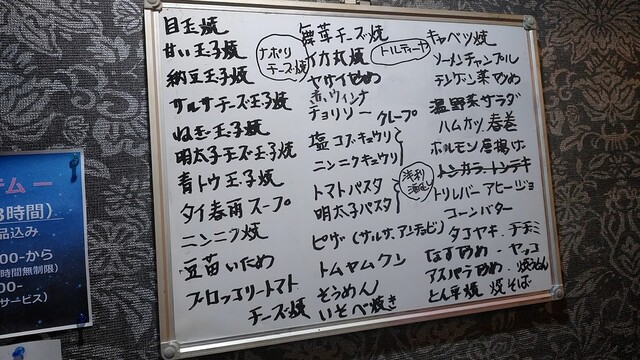 目玉焼
甘い玉子焼
納豆玉子焼
サルサチーズ玉子焼
ねぎ玉子焼
明太子チーズ玉子焼
青トウ玉子焼
タイ春雨スープ
ニンニク焼
豆苗いため
ブロッコリートマト
チーズ焼
ナポリ
チーズ焼
舞茸チーズ焼
イカ丸焼
トルティーヤ
ヤサイ炒め
赤いウィンナ
チョリソー
クレープ
塩コブキュウリ
ニンニクキュウリ
トマトパスタ
明太子パスタ
浅利
酒蒸
ピザ(サルサ、アンチョビ)
トムヤムクン
そうめん
いそべ焼き
キャベツ焼
ソーメンチャンプル
チンゲン菜炒め
温野菜サラダ
ハムカツ 春巻
ホルモン唐揚げ
トンカラ、トンテキ
トリレバーアヒージョ
コーンバター
タコヤキ・チヂミ
なす炒め・ヤッコ
アスパラ炒め・焼うどん
とん平焼 焼そば
テムー
時間)
品込み
00-から
時間無制限)
00-
サービス)